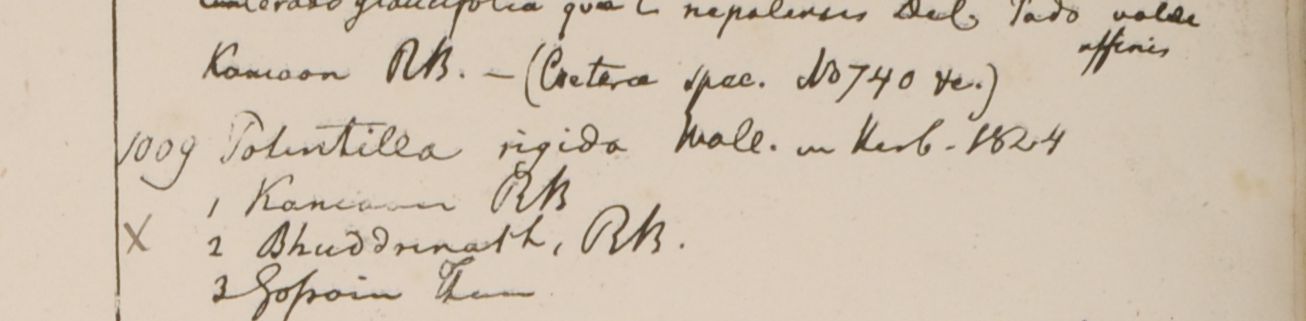 glaucifolia quae C nepalensis Del. Tado valde
affinis
Kamaon RB. – (Caetera spec. No 740 &c.)
1009 Potentilla rigida Wall. in Herb. 1824
1 Kamaon RB
X 2 Bhuddrinath, RB.
3 Gossain Than